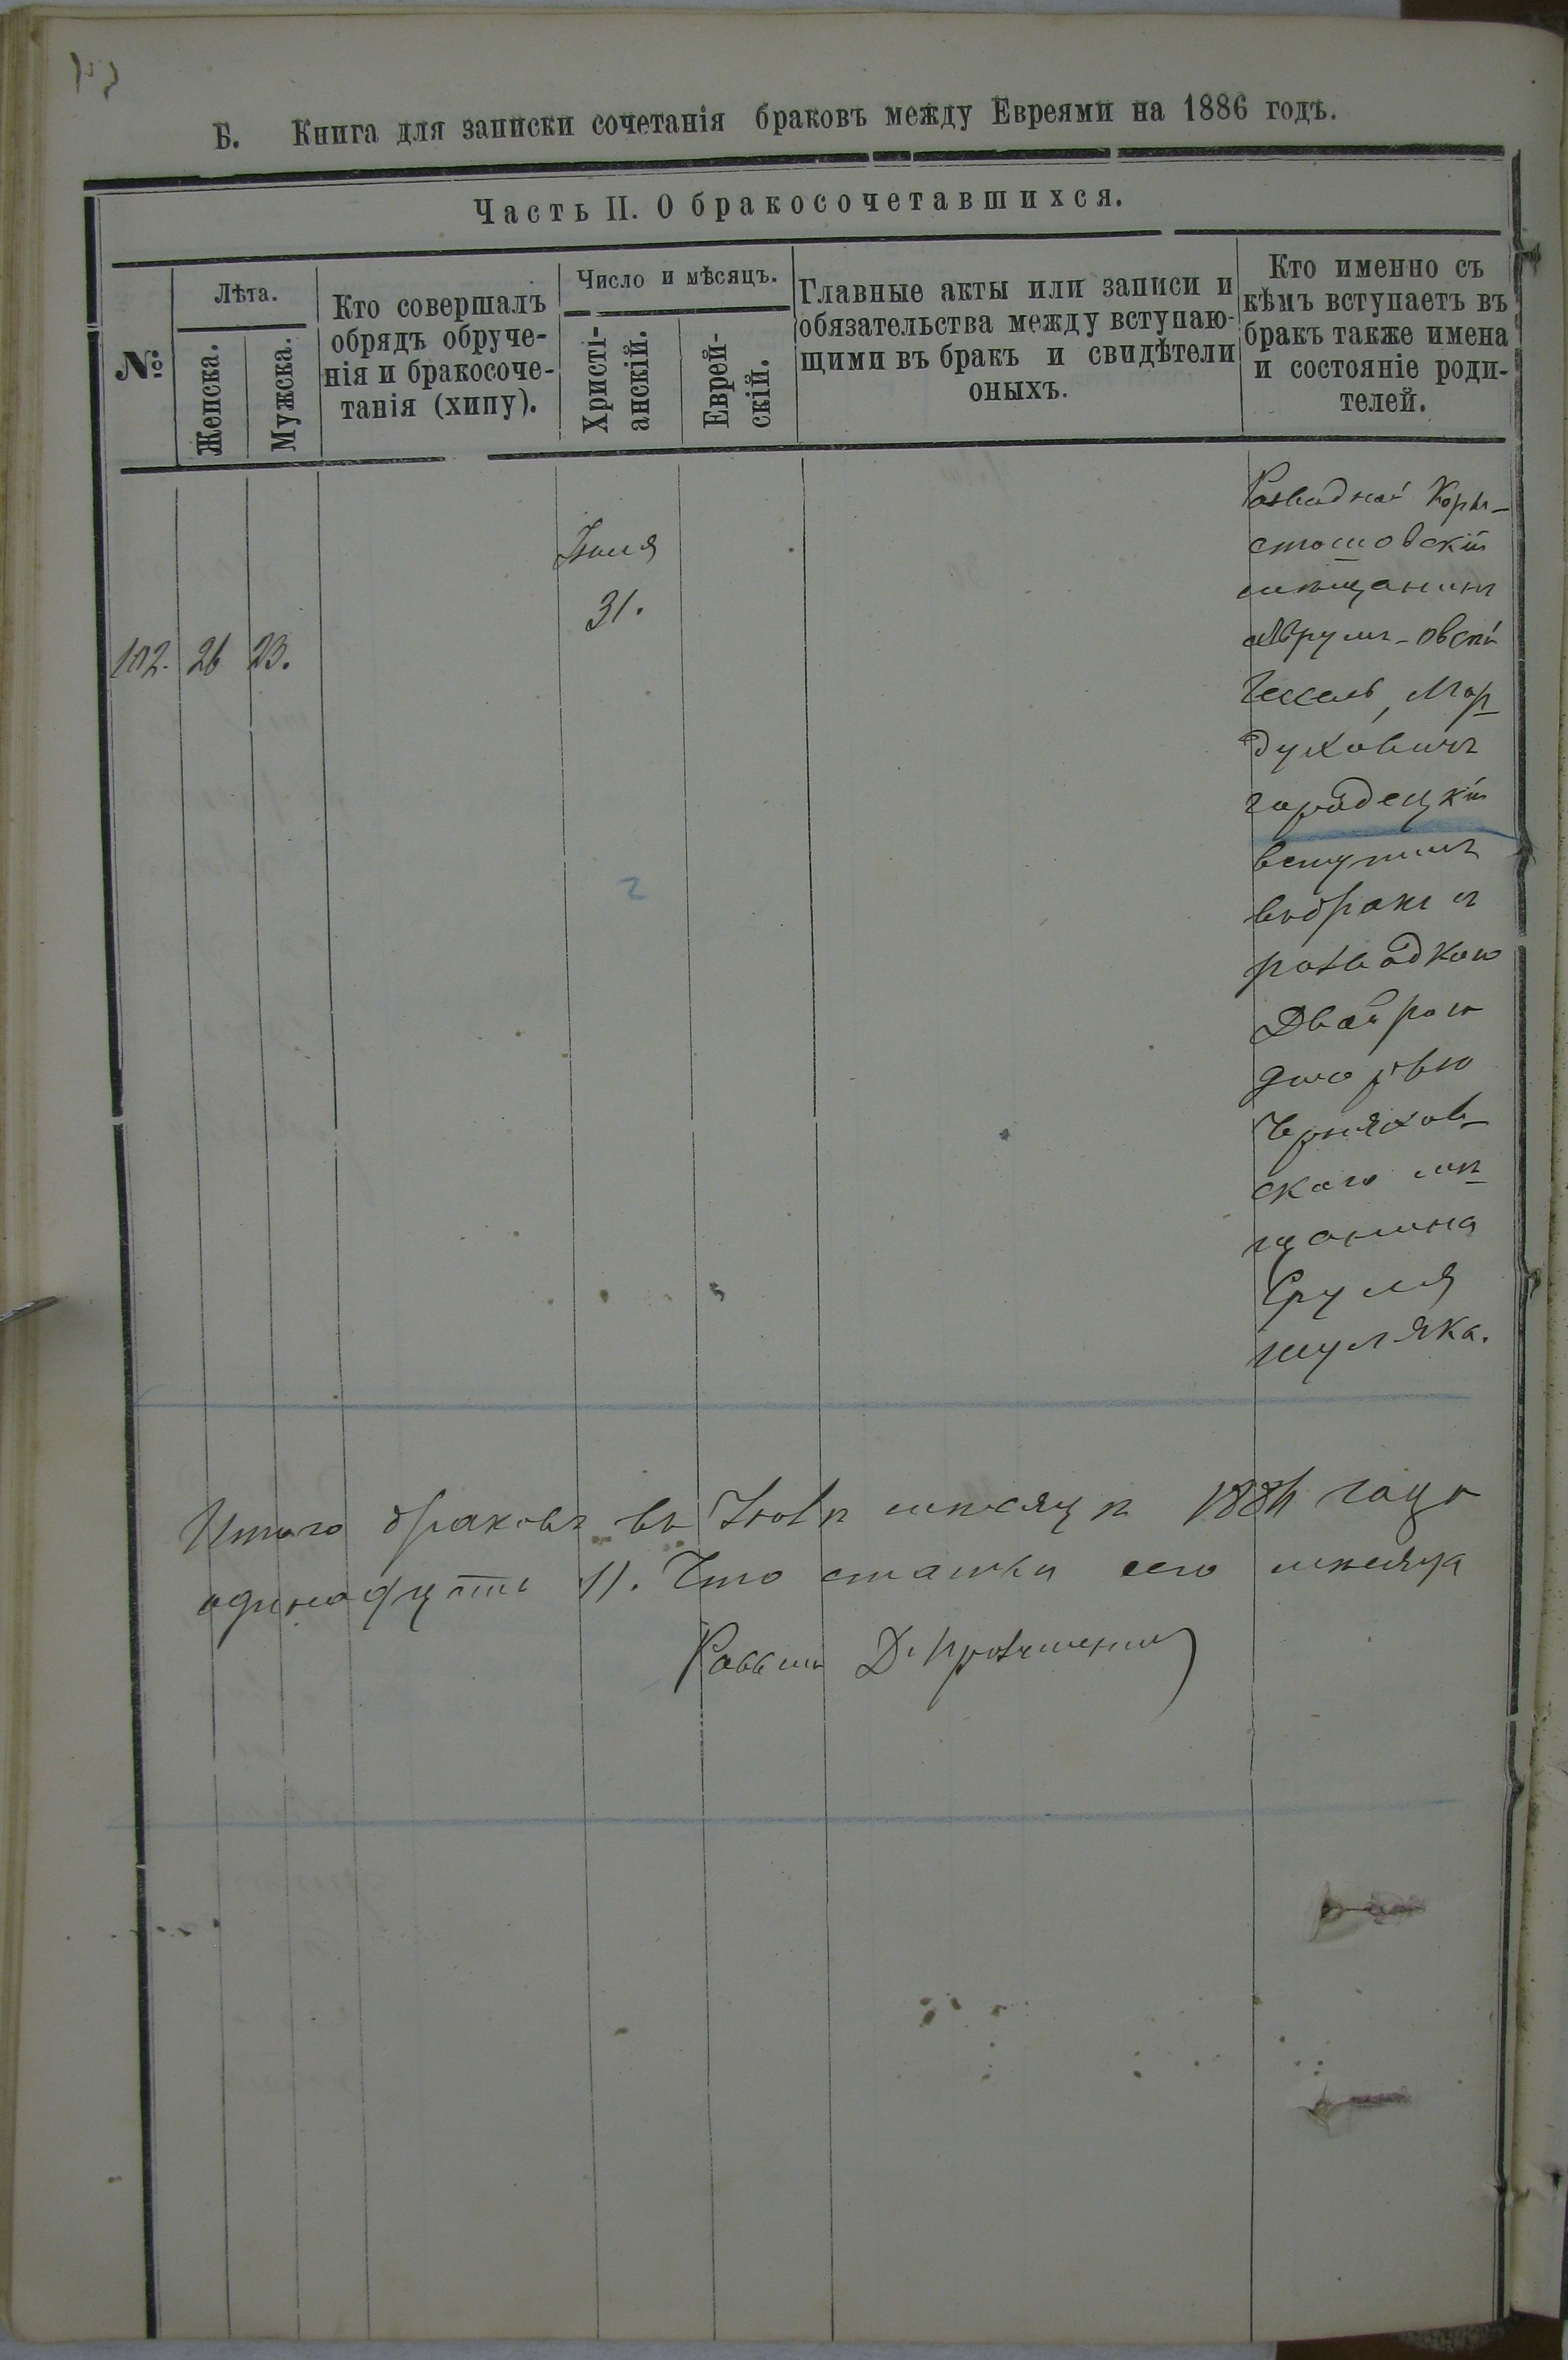 Б. Книга для записки сочетанія браковъ между Евреями на 1886 годъ.
Часть II. О бракосочетавшихся.
№
Лѣта.
Женска.
Мужска.
Кто совершалъ
обрядъ обруче-
нія и бракосоче-
танія (хипу).
Число и мѣсяцъ.
Христі-
анскій.
Еврей-
скій.
Главные акты или записи и
обязательства между вступаю-
щими въ бракъ и свидѣтели
оныхъ.
Кто именно съ
кѣмъ вступаетъ въ
бракъ также имена
и состояніе роди-
телей.
102. 26 23.
Іюля
31.
Разводной Коры-
стошовскій
мѣщанинъ
Аврумъ-Овсій
Мор
духовичъ
Городецкій
вступилъ
въ бракъ съ
разводкою
Двойрою
дочерью
Черняхов-
скаго мѣ
щанина
Сруля
Шуляка.
Итого браковъ въ Іюлѣ мѣсяцѣ 1886 года
одинадцать 11. сего мѣсяца
Раввинъ